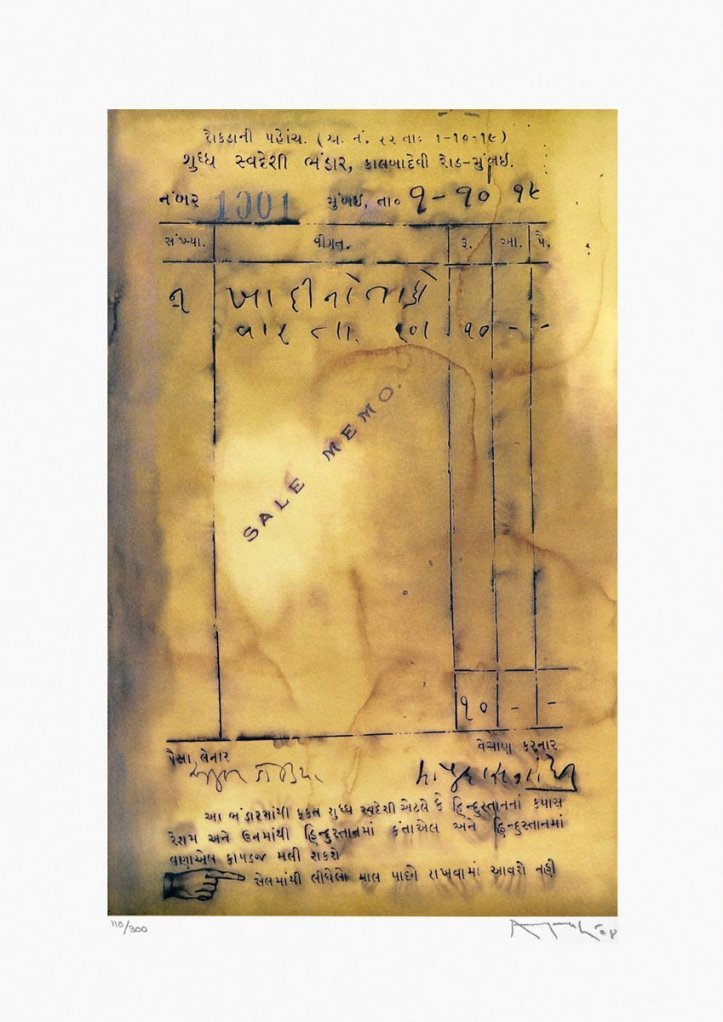 રોકડાની પહોંચ. (અ. નં. ૨૨ તા: ૧-૧૦-૧૯)
શુધ્ધ સ્વદેશી ભંડાર, કાલબાદેવી રોડ-મુંબઈ.
નંબર 1001 મુંબઈ, તા૦ ૧-૧૦ ૧૯
સંખ્યા. વીગત. રૂ. આ. પૈ.
ખાદીનો
વાર ૧૦ - -
SALE MEMO.
૧૦ - -
પૈસા લેનાર વેચાણ કરનાર
આ ભંડારમાંથી ફક્ત શુધ્ધ સ્વદેશી એટલે કે હિન્દુસ્તાનનાં કપાસ
રેશમ અને ઉનમાંથી હિન્દુસ્તાનમાં કંતાએલ અને હિન્દુસ્તાનમાં
વણાએલ કાપડજ મલી શકશે
સેલમાંથી લીધેલો માલ પાછો રાખવામાં આવશે નહી
110/300